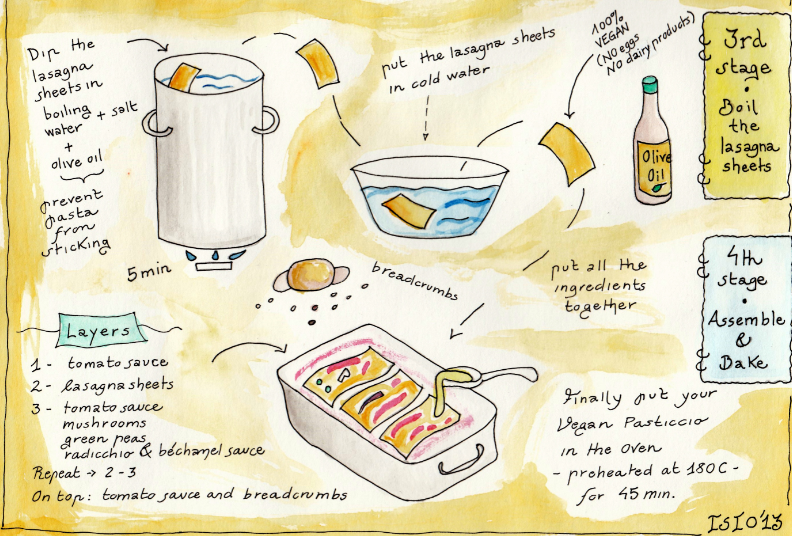 Dip the
lasagna
sheets in
boiling
water + salt
+
olive oil
prevent
pasta
from
sticking
5 min
put the lasagna sheets
in cold water
100%
VEGAN
(NO eggs
NO dairy products)
Olive
Oil
3rd
stage
•
Boil
the
lasagna
sheets
4th
stage
•
Assemble
&
Bake
breadcrumbs
put all the
ingredients
together
Layers
1 - tomato sauce
2 - lasagna sheets
3 - tomato sauce
mushrooms
green peas
radicchio & béchamel sauce
Repeat → 2 - 3
On top: tomato sauce and breadcrumbs
Finally put your
Vegan Pasticcio
in the oven
- preheated at 180C -
for 45 min.
ISIO'13